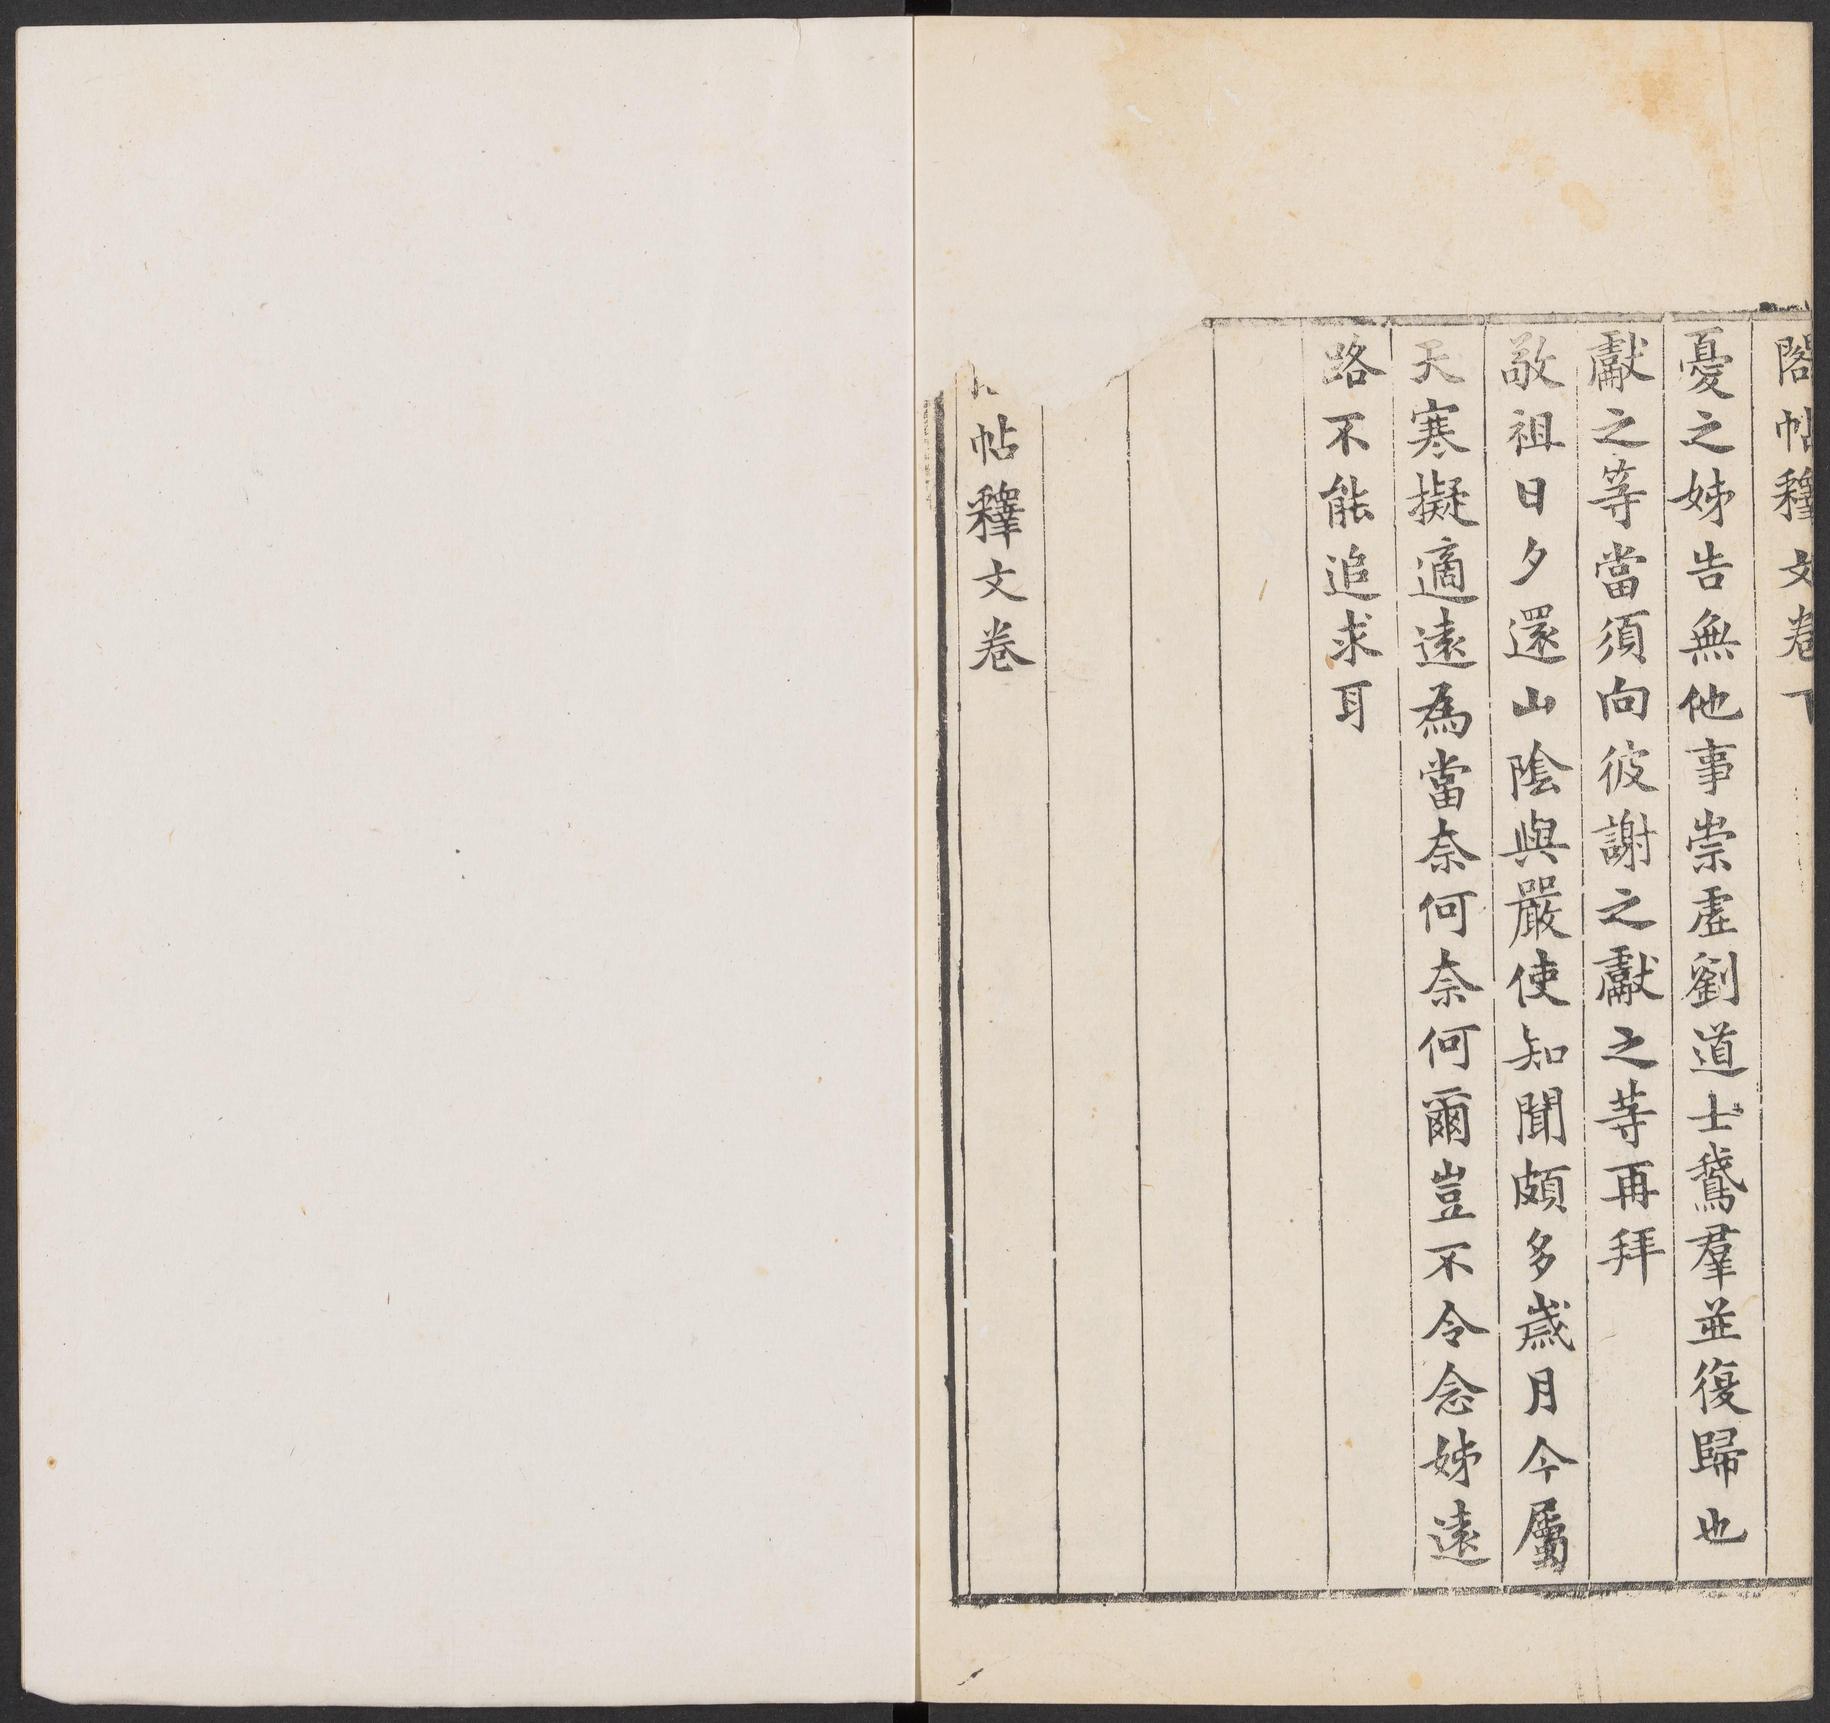 閣帖釋文卷下
憂之姊告無他事崇虛劉道士鵞羣並復歸也
獻之等當須向彼謝之獻之等再拜
敬祖日夕還山陰與嚴使知聞頗多歲月今屬
天寒擬適遠為當奈何奈何爾豈不令念姊遠
路不能追求耳
帖釋文卷